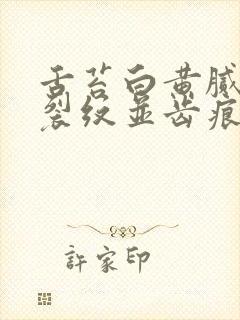 舌苔白黄腻
裂纹并齿痕
許家印